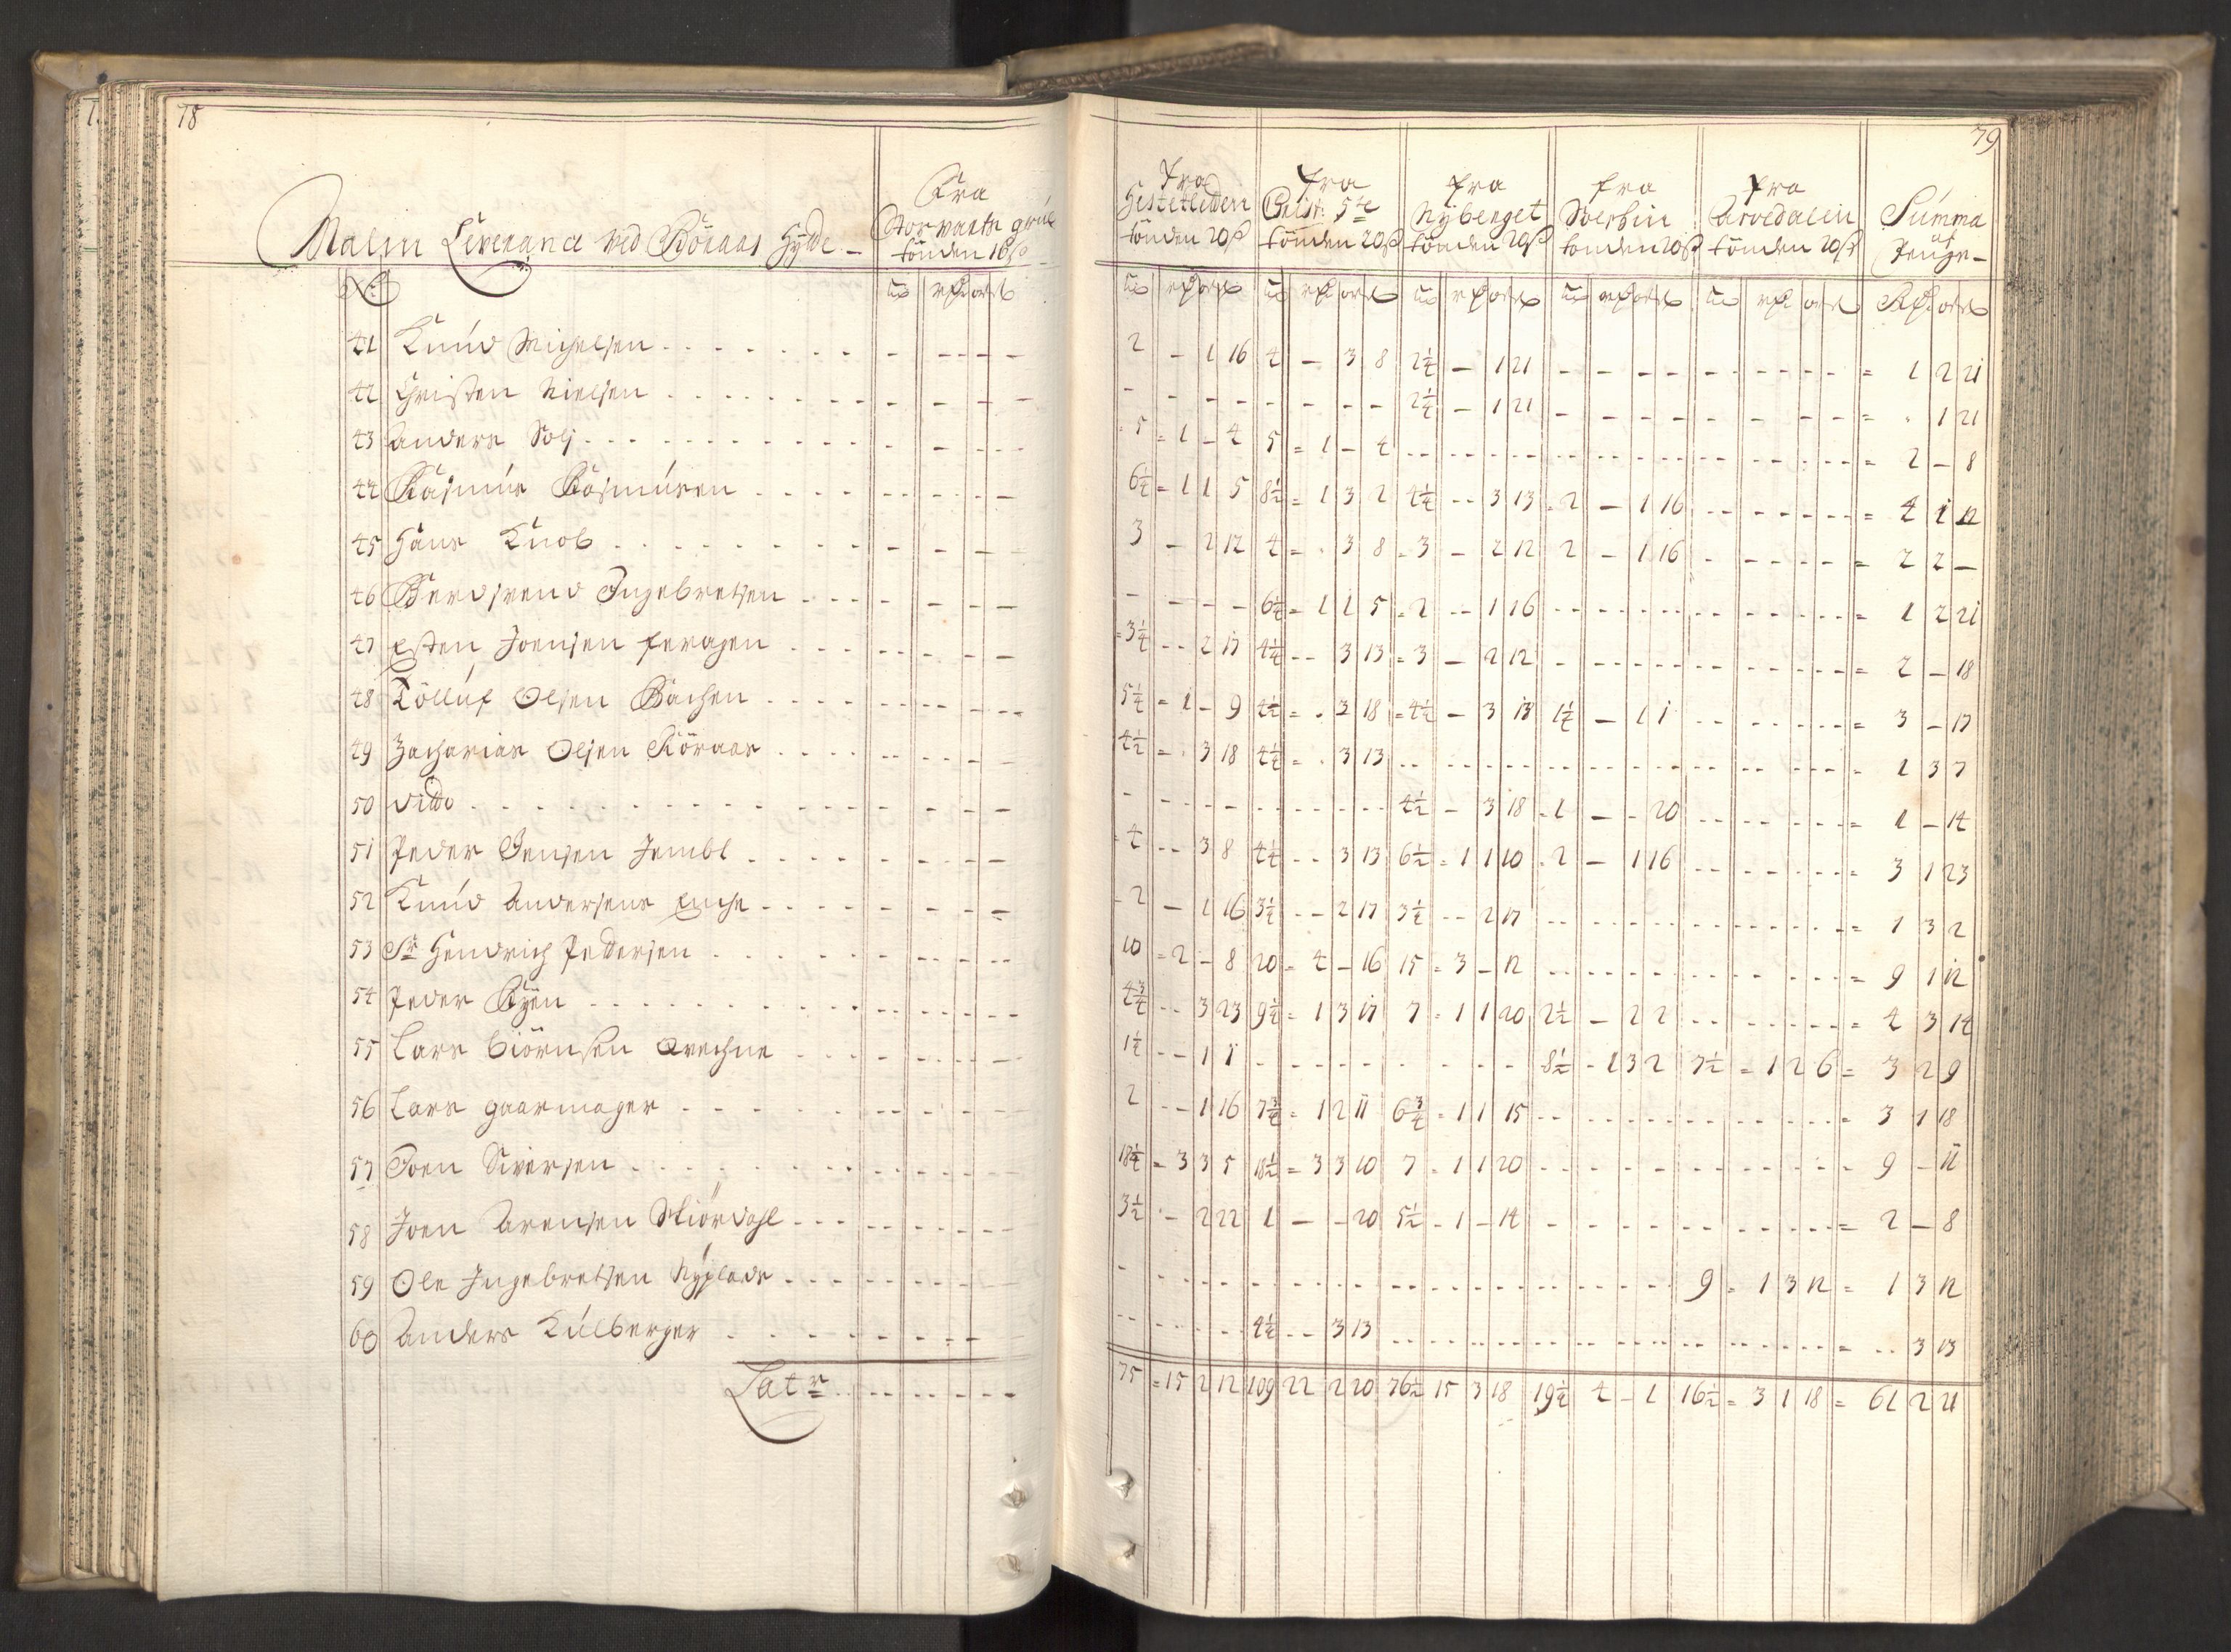 78
79
Malm Leverance ved Röraas Hytte
Fra Storvarts grube tönden 16 ß
Fra Hestkletten tönden 20 ß
Fra Christ: 5te tönden 20 ß
Fra Nyberget tönden 20 ß
Fra tönden 20 ß
Fra Arvedalen tönden 20 ß
Summa af Penge
No
41 Knud Michelsen - - - - 2 - 1 16 4 - 3 8 2¼ - 1 21 - - - - - - - - 1 2 21
42 Christen Nielsen - - - - - - - - - - - - 2¼ - 1 21 - - - - - - - - - 1 21
43 Anders - - - - 5 1 - 4 5 1 - 4 - - - - - - - - - - - - 2 - 8
44 Rasmus Rasmusen - - - - 6¼ 1 1 5 8½ 1 3 2 4¼ - 3 13 2 - 1 16 - - - - 4 1 12
45 Hans Knob - - - - 3 - 2 12 4 - 3 8 3 - 2 12 2 - 1 16 - - - - 2 2 -
46 Berdsvend Ingebretsen - - - - - - - - 6¼ 1 1 5 2 - 1 16 - - - - - - - - 1 2 21
47 Esten Joensen Feragen - - - - 3¼ - 2 17 4¼ - 3 13 3 - 2 12 - - - - - - - - 2 - 18
48 Tölluf Olsen Bachen - - - - 5¼ 1 - 9 4½ - 3 18 4¼ - 3 13 1½ - 1 1 - - - - 3 - 17
49 Zacharias Olsen Röraas - - - - 4½ - 3 18 4¼ - 3 13 - - - - - - - - - - - - 1 3 7
50 ditto - - - - - - - - - - - - 4½ - 3 18 1 - - 20 - - - - 1 - 14
51 Peder Jensen Jembt - - - - 4 - 3 8 4¼ - 3 13 6½ 1 1 10 2 - 1 16 - - - - 3 1 23
52 Knud Andersens Enche - - - - 2 - 1 16 3¼ - 2 17 3¼ - 2 17 - - - - - - - - 1 3 2
53 Sr Hendrich Pettersen - - - - 10 2 - 8 20 4 - 16 15 3 - 12 - - - - - - - - 9 1 12
54 Peder Ryen - - - - 4¾ - 3 23 9¼ 1 3 17 7 1 1 20 2½ - 2 2 - - - - 4 3 14
55 Lars Biörnsen - - - - 1½ - 1 1 - - - - - - - - 8½ 1 3 2 7½ 1 2 6 3 2 9
56 Lars gaarmager - - - - 2 - 1 16 7¾ 1 2 11 6¾ 1 1 15 - - - - - - - - 3 1 18
57 Joen Siversen - - - - 18¼ 3 3 5 18½ 3 3 10 7 1 1 20 - - - - - - - - 9 - 11
58 Joen Arensen Stiördahl - - - - 3½ - 2 22 1 - - 20 5½ 1 - 14 - - - - - - - - 2 - 8
59 Ole Ingebretsen Nyplads - - - - - - - - - - - - - - - - - - - - 9 1 3 12 1 3 12
60 Anders Kulberger - - - - - - - - 4¼ - 3 13 - - - - - - - - - - - - - 3 13
Latr - - - - 75 15 2 12 109 22 2 20 76½ 15 3 18 19½ 4 - 1 16½ 3 1 18 61 2 21